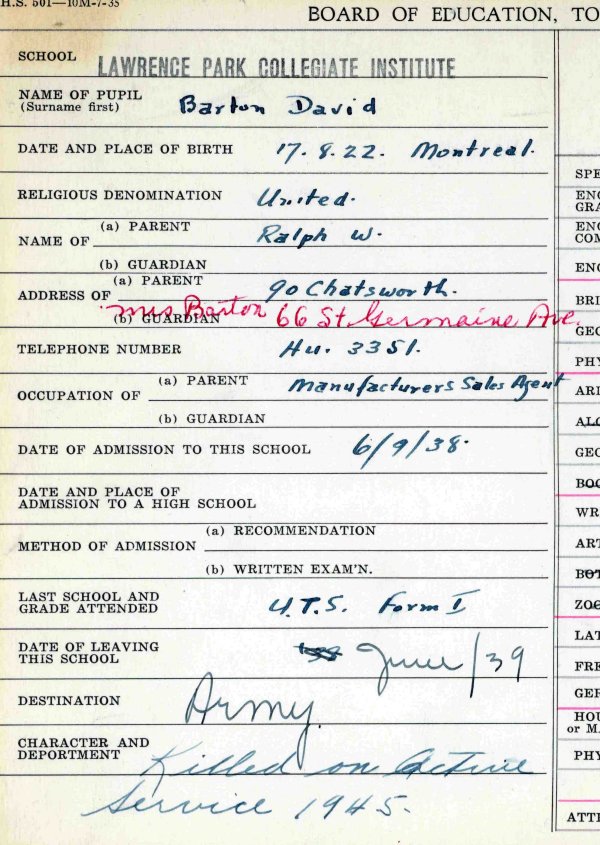 H.S. 501—10M-7-35
BOARD OF EDUCATION, TO
SCHOOL LAWRENCE PARK COLLEGIATE INSTITUTE
NAME OF PUPIL
(Surname first) Barton David
DATE AND PLACE OF BIRTH 17.8.22. Montreal.
RELIGIOUS DENOMINATION United.
(a) PARENT Ralph W.
NAME OF
(b) GUARDIAN
(a) PARENT 90 Chatsworth.
ADDRESS OF
Mrs Barton 66 St. Germaine Ave.
(b) GUARDIAN
TELEPHONE NUMBER Hu. 3351.
(a) PARENT Manufacturers Sales Agent
OCCUPATION OF
(b) GUARDIAN
DATE OF ADMISSION TO THIS SCHOOL 6/9/38.
DATE AND PLACE OF
ADMISSION TO A HIGH SCHOOL
(a) RECOMMENDATION
METHOD OF ADMISSION
(b) WRITTEN EXAM'N.
LAST SCHOOL AND
GRADE ATTENDED U.T.S. Form I
DATE OF LEAVING
THIS SCHOOL June/39
DESTINATION Army.
CHARACTER AND
DEPORTMENT Killed on Active
Service 1945.
SPE
ENG
GRA
ENG
COM
ENG
BRI
GEO
PHY
ARI
ALG
GEO
BOO
WR
ART
BOT
ZOO
LAT
FRE
GER
HOU
or MA
PHY
ATTE